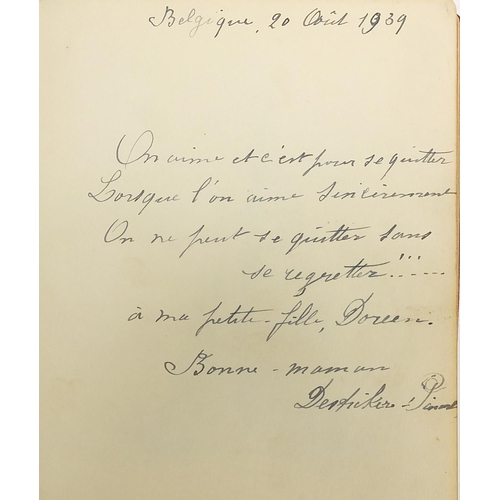 Belgique, 20 Août 1939
On aime et c'est pour se quitter
Lorsque l'on aime sincèrement
On ne peut se quitter sans
se regretter!!!......
à ma petite-fille, Doreen.
Bonne-maman